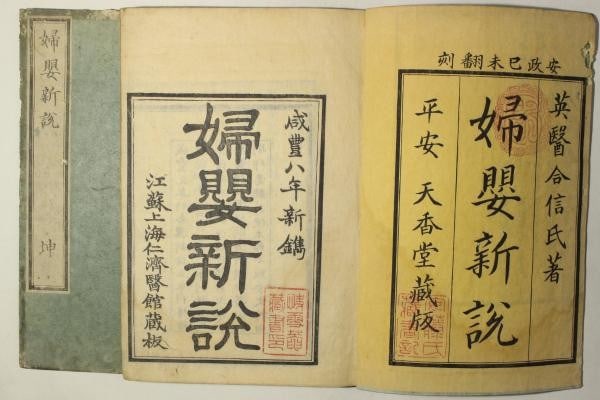 安政巳未翻刻
英醫合信氏著
婦嬰新說
平安 天香堂藏版
咸豐八年新鐫
婦嬰新說
江蘇上海仁濟醫館藏板
婦嬰新說 坤